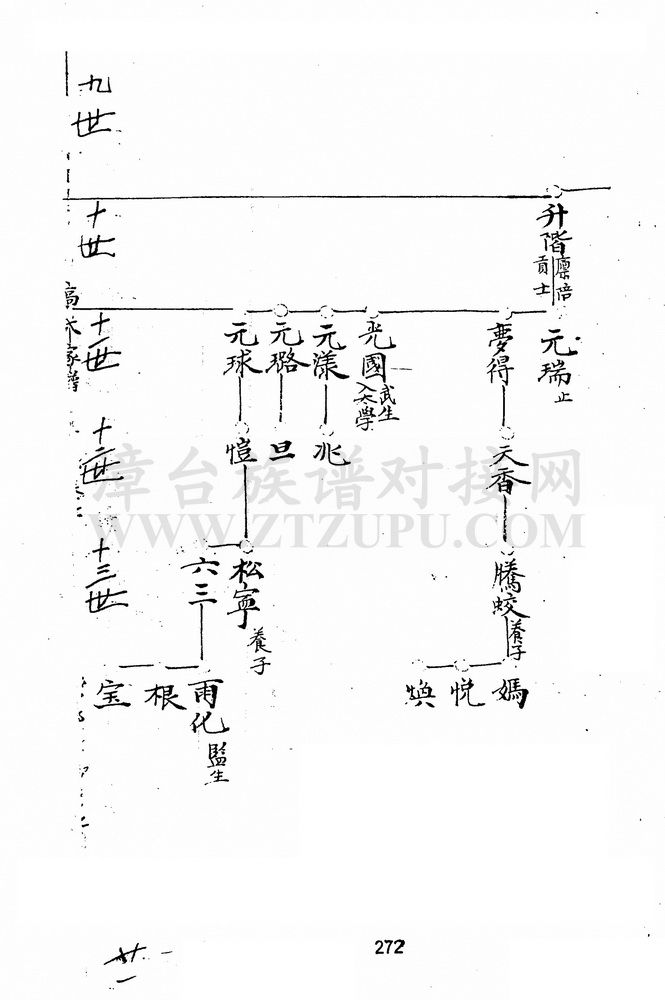 九世
十世
十一世
十二世
十三世
升階
廪
貢士
元瑞
止
夢得
光國
武生
入太學
元漾
元璐
元球
天香
兆
旦
愷
騰蛟
養子
松寧
養子
六三
媽
悦
焕
雨化
監生
根
宝
漳台族谱对接网
WWW.ZTZUPU.COM
272